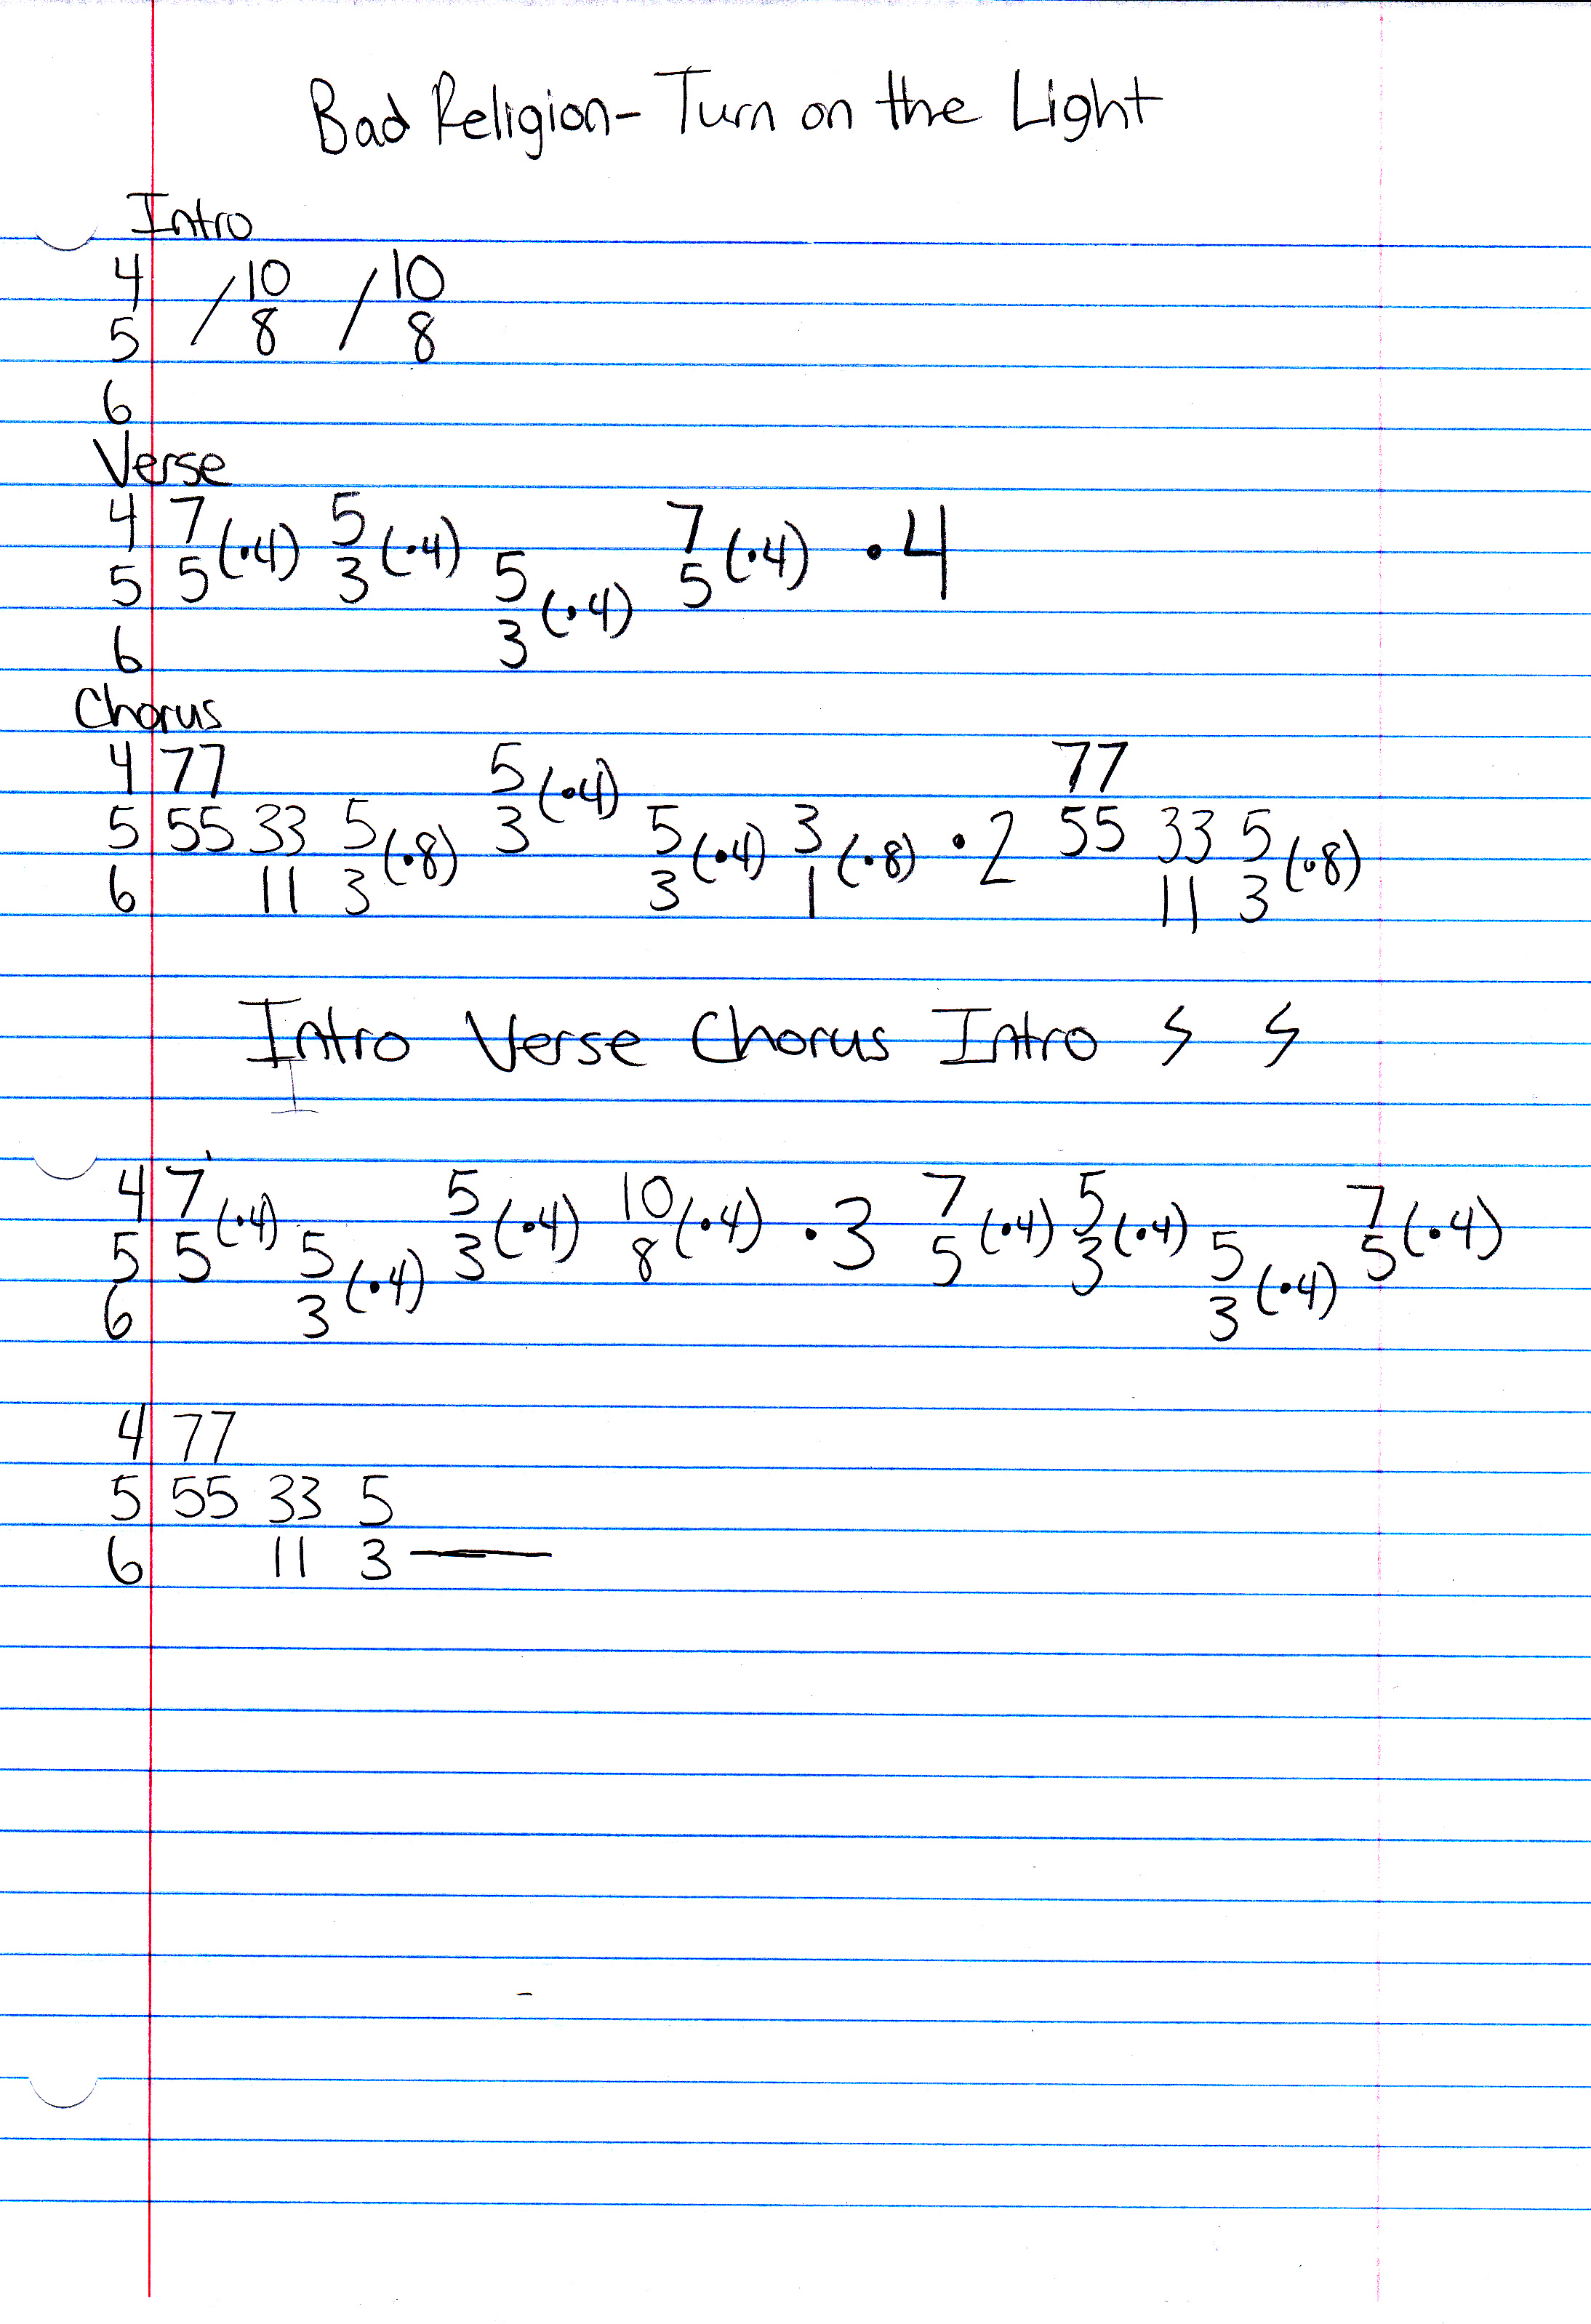 Bad Religion- Turn on the Light
Intro
4 / 10 / 10
5 8 8
6
Verse
4 7 (·4) 5 (·4) 7 (·4) ·4
5 5 3 5 (·4) 5
6 3
Chorus
4 77 5 (·4) 77
5 55 33 5 (·8) 3 5 (·4) 3 (·8) ·2 55 33 5 (·8)
6 11 3 3 1 11 3
Intro Verse Chorus Intro
4 7 (·4) 5 (·4) 10 (·4) ·3 7 (·4) 5 (·4) 7 (·4)
5 5 5 (·4) 3 8 5 3 5 (·4) 5
6 3 3
4 77
5 55 33 5
6 11 3 —